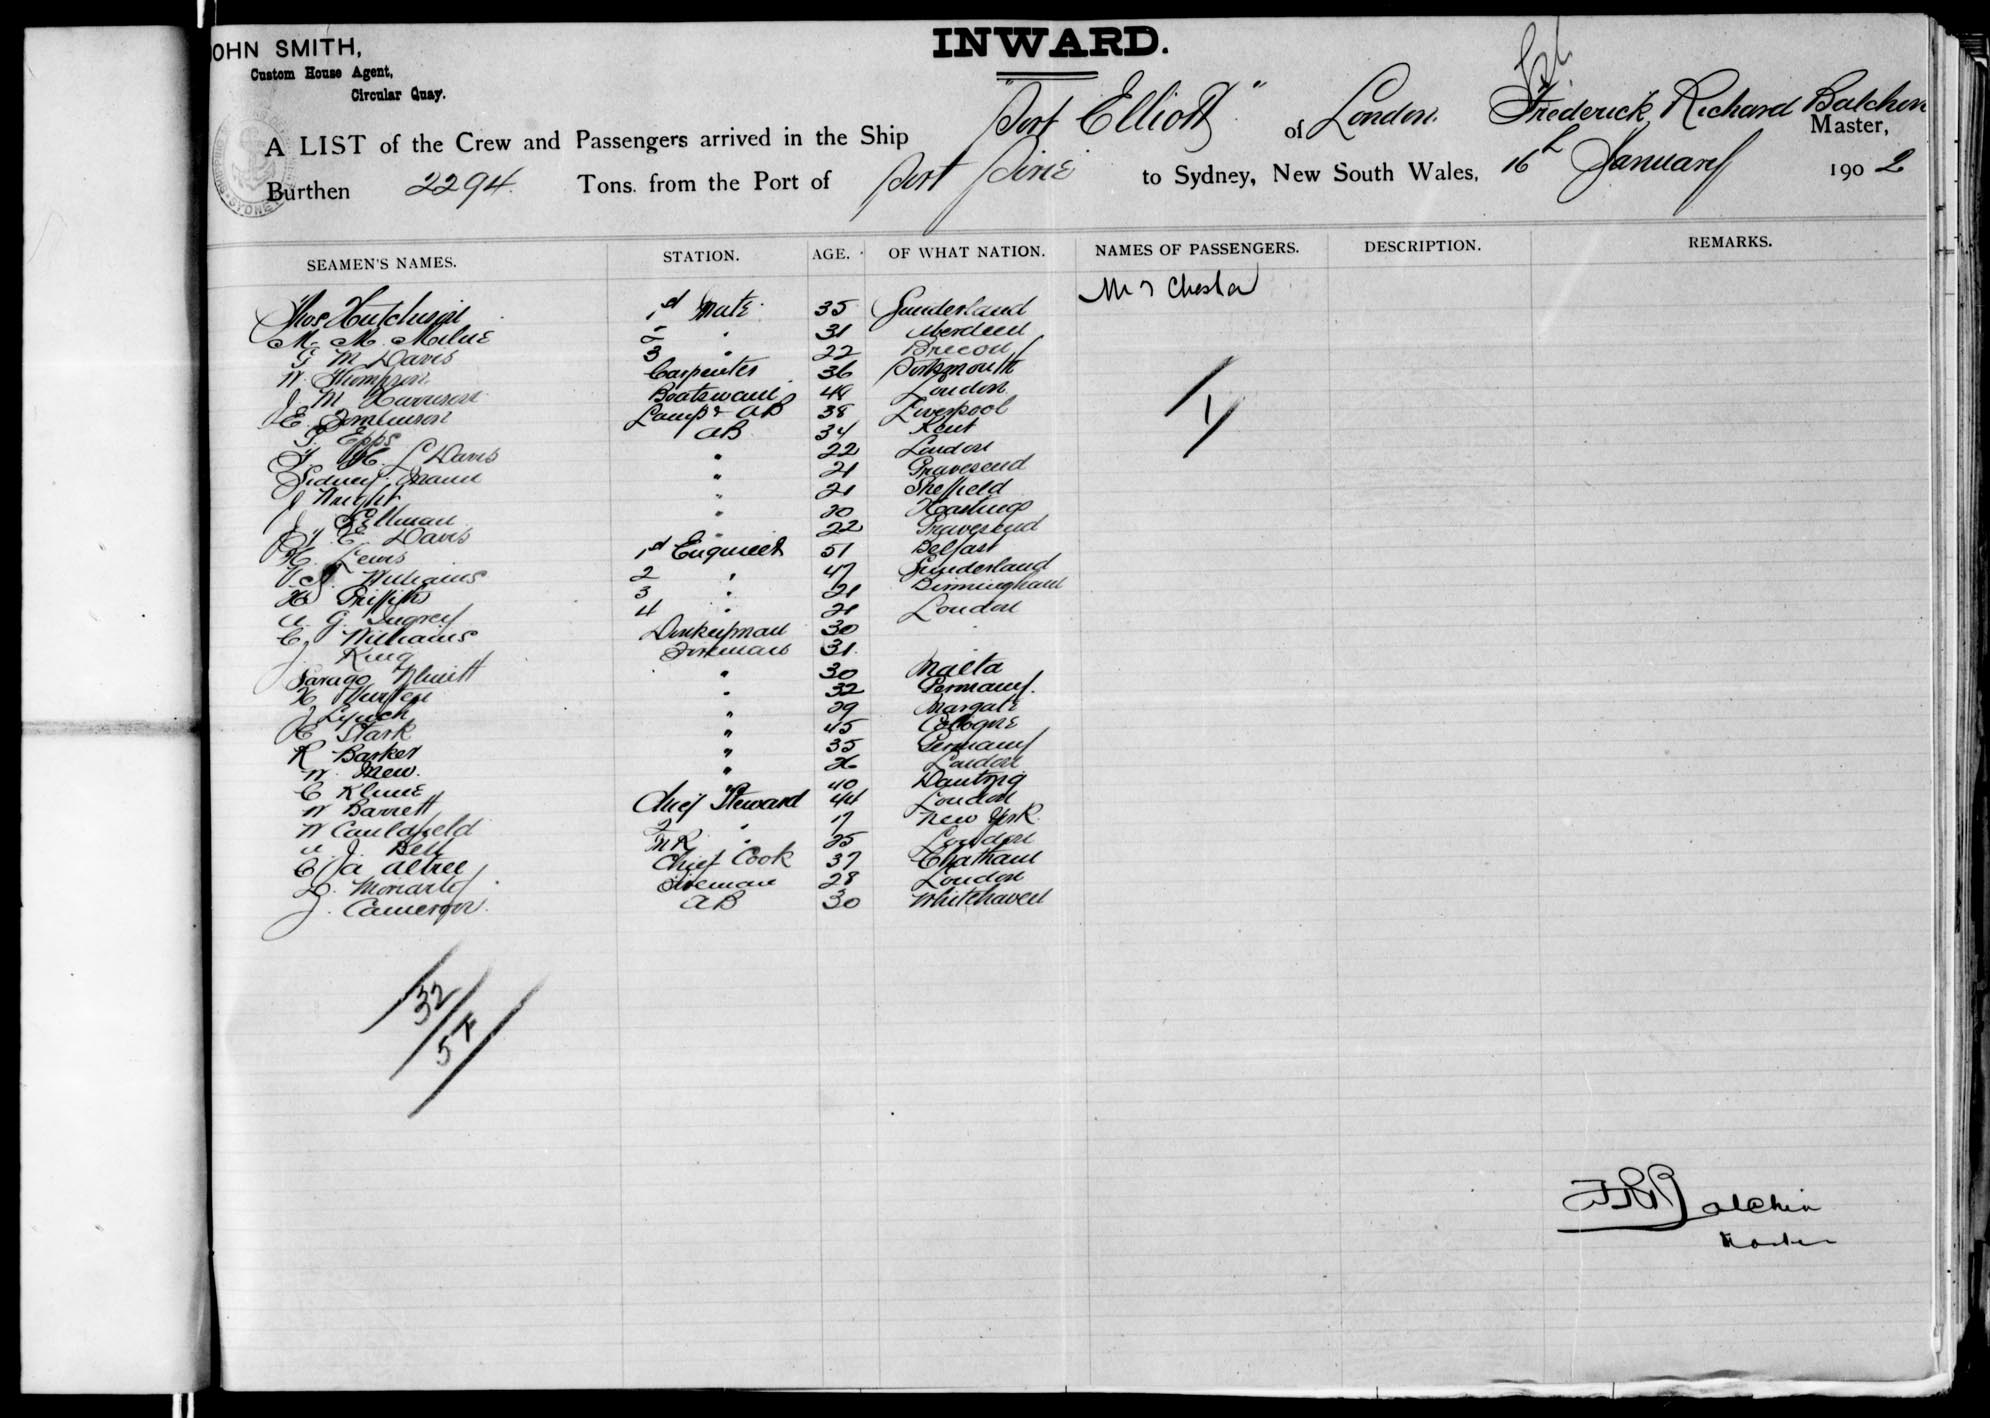 OHN SMITH,
Custom House Agent,
Circular Quay.
INWARD.
A LIST of the Crew and Passengers arrived in the Ship "Port Elliott" of London. Frederick Richard Balchin Master,
Burthen 2294 Tons. from the Port of Port Pirie to Sydney, New South Wales, 16th January 1902
SEAMEN'S NAMES. STATION. AGE. OF WHAT NATION. NAMES OF PASSENGERS. DESCRIPTION. REMARKS.
Mr Chester
Thos Hutchison 1st Mate 35 Sunderland
M. M. Milne 2 " 31 Aberdeen
G M Davis 3 " 22 Brecon
W. Thompson Carpenter 36 Portsmouth
J. M Harrison Boatswain 48 London
E. Tomlinson Lamps & AB 38 Liverpool
G. Epps AB 34 Kent
H. L Davis " 22 London
Sidney Mann " 21 Gravesend
J Wright " 21 Sheffield
J. Sellman " 20 Hastings
E. Davis " 22 Gravesend
H. Lewis 1st Engineer 51 Belfast
Williams 2 " 47 Sunderland
W Griffiths 3 " 21 Birmingham
A. G. Tugrey 4 " 21 London
C. Williams Donkeyman 30
J. King Fireman 31
Sarago " 30 Malta
H " 32 Germany.
J Lynch " 29 Margate
C Stark " 45 Cologne
R Barker " 35 Germany
W. Mew. " 26 London
C Klune " 40 Dantzig
W Barrett Chief Steward 44 London
W Cauldfield 2 " 17 New York.
A. J. Bell MR " 25 London
C. A Altree Chief Cook 37 Chatham
D. Moriarty Fireman 28 London
J. Cameron. AB 30 Whitehaven
1
32
57
F R Balchin
Master